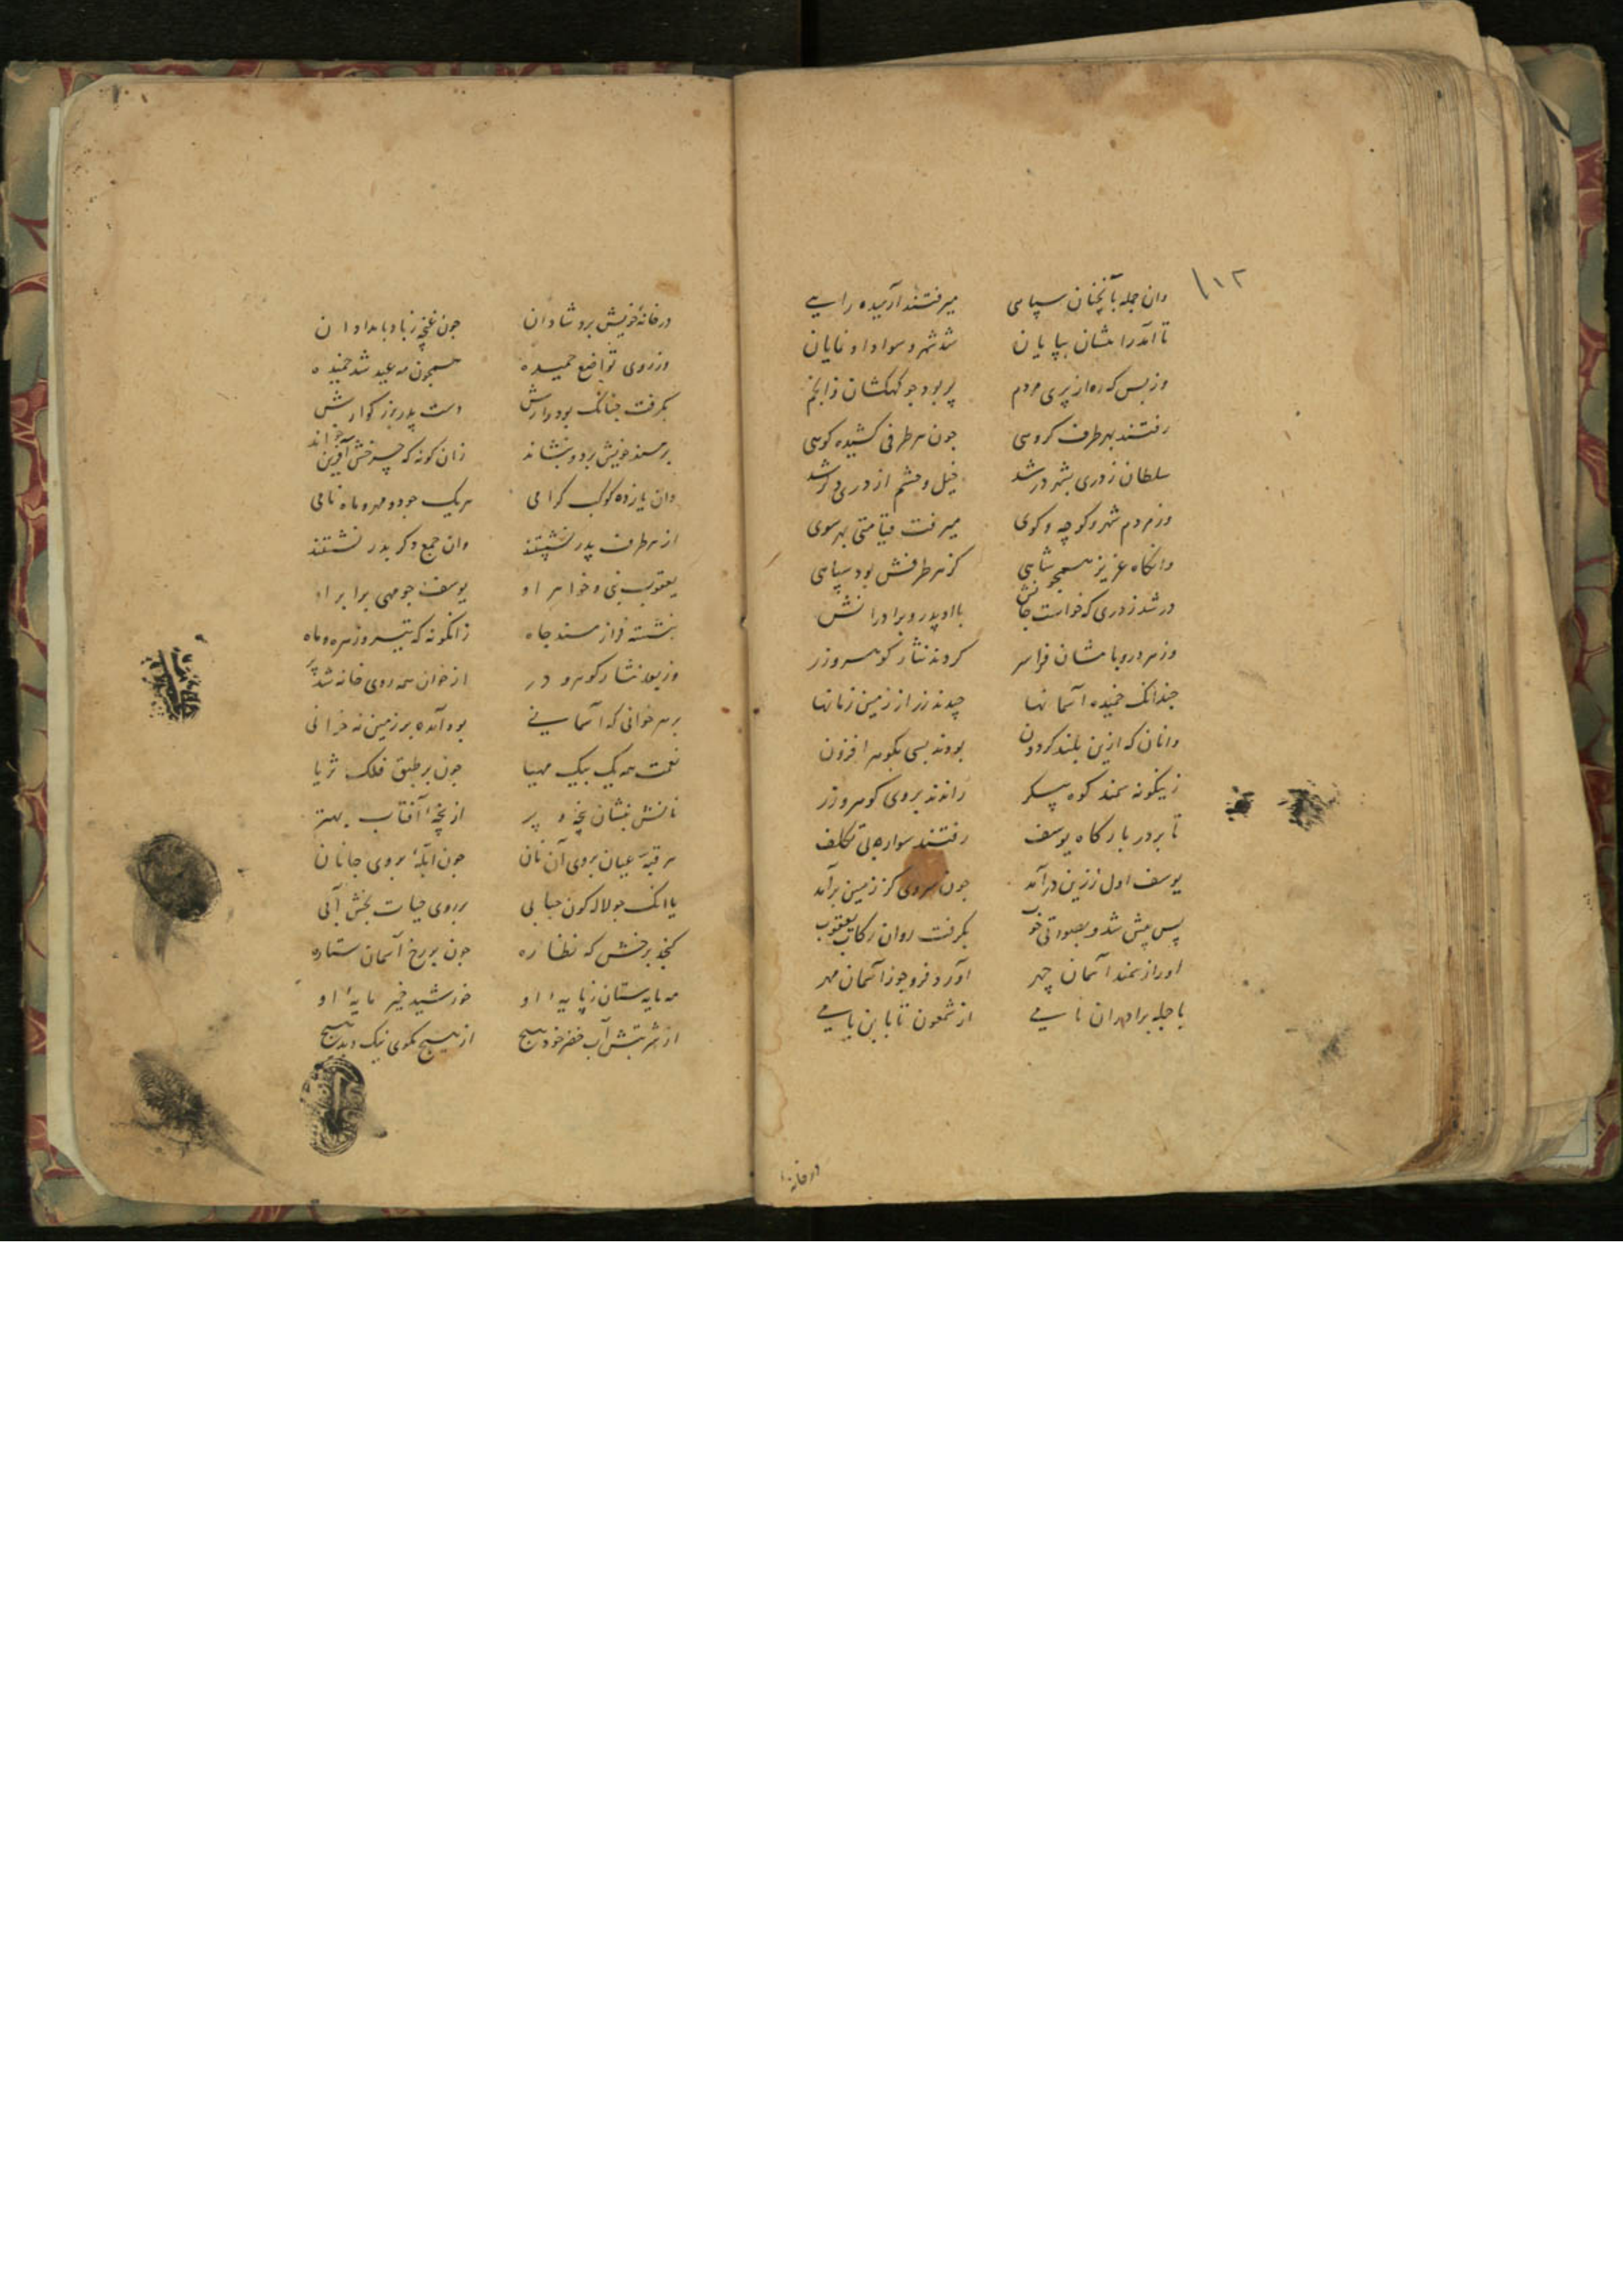 ۱۱۲
وان جمله بآنچنان سپاهی میرفتند آرمیده راهی
تا آمد راهشان بپایان شد شهر و سواد او نمایان
وز بس که ره از پری مردم پر بود جو کهکشان ز انجم
رفتند بهر طرف کروهی جون هر طرفی کشیده کوهی
سلطان ز دری بشهر در شد خیل و حشم از دری دکر شد
وز مردم شهر و کوچه و کوی میرفت قیامتی بهر سوی
وانکاه عزیز همجو شاهی کز هر طرفش بود سپاهی
در شد ز دری که خواست جانش با او پدر و برادرانش
وز هر در و بامشان فرا سر کردند نثار کوهر و زر
جندانک خمیده آسمانها چیدند زر از زمین زمانها
وانان که ازین بلند کردون بودند بسی بکوهر افزون
زینکونه سمند کوه پیکر راندند بروی کوهر و زر
تا بر در بارکاه یوسف رفتند سواره بی تکلف
یوسف اول ز زین در آمد جون سروی کز زمین بر آمد
پس پیش شد و بصورتی خوب بکرفت روان رکاب یعقوب
او را ز سمند آسمان چهر آورد فرو جو ز آسمان مهر
با جمله برادران نامی از شمعون تا بابن یامی
در خانه
در خانهٔ خویش برد شادان جون غنچه ز باد بامدادان
وز روی تواضع حمیده همجون مه عید شد خمیده
بکرفت جنانک بود رایش دست پدر بزرکوارش
بر مسند خویش برد و بنشاند زان کونه که چرخش آفرین خواند
وان یازده کوکب کرامی هر یک جو دو مهر و ماه نامی
از هر طرف پدر نشستند وان جمع دکر بدر نشستند
یعقوب نبی و خواهر او یوسف جو مهی برابر او
بنشسته فراز مسند جاه زانکونه که تیر و زهره و ماه
وز بعد نثار کوهر و در از خوان همه روی خانه شد پر
بر هر خوانی که آسمانی بود آمده بر زمین نه خوانی
نعمت همه یک بیک مهیا جون بر طبق فلک ثریا
نانش بنشان پنجه و پر از پنجهٔ آفتاب بهتر
هر قبه عیان بروی آن نان جون آبلهٔ بروی جانان
یا انک جو لاله کون حبابی بر روی حیات بخش آبی
کنجد برخش که نظاره جون بر رخ آسمان ستاره
مه مایه ستان ز پایهٔ او خورشید خمیر مایهٔ او
از شربتش آب خضر خود هیچ از هیچ مکوی نیک و بد هیچ